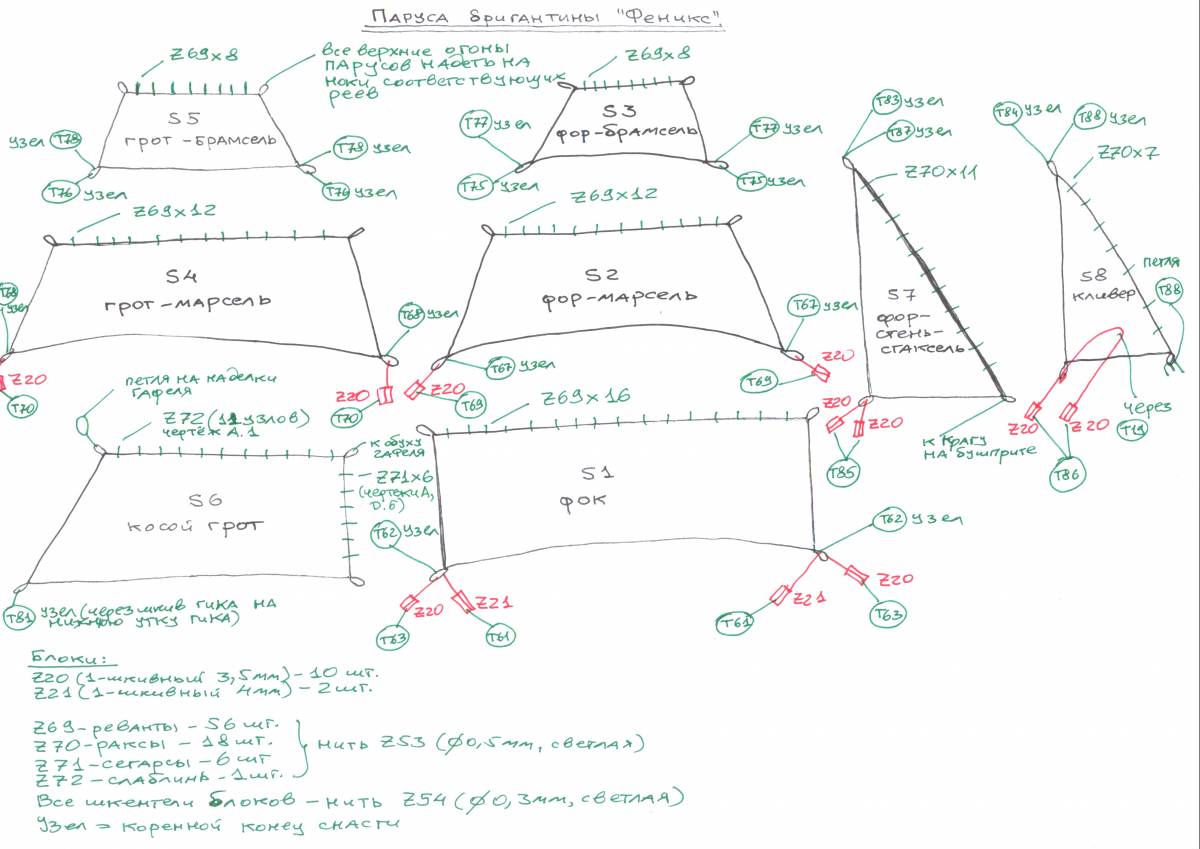 Паруса бригантины "Феникс".
Z69×8
все верхние огоны
парусов надеть на
ноки соответствующих
реев
S5
грот-брамсель
узел T78
T78 узел
T76 узел
T76 узел
Z69×8
S3
фор-брамсель
T77 узел
T77 узел
T75 узел
T75 узел
T83 узел
T87 узел
Z70×11
S7
фор-
стень-
стаксель
Z20
Z20
T85
к крагу
на бушприте
T84 узел
T88 узел
Z70×7
S8
кливер
петля
T88
Z20
Z20
через
T86
Z69×12
S4
грот-марсель
T68
узел
Z20
T70
T68 узел
Z20
T70
Z69×12
S2
фор-марсель
T67 узел
Z20
T69
T67 узел
Z20
T69
петля на наделки
гафеля
Z72 (11 узлов)
чертёж А.1
к обуху
гафеля
Z71×6
(чертежи А,
D.б)
S6
косой грот
T81 узел (через шкив гика на
нижнюю утку гика)
Z69×16
S1
фок
T62 узел
Z20
Z21
T63
T61
T62 узел
Z20
Z21
T61
T63
Блоки:
Z20 (1-шкивный 3,5мм) – 10 шт.
Z21 (1-шкивный 4мм) – 2 шт.
Z69-реванты – 56 шт.
Z70-раксы – 18 шт.
Z71-сегарсы – 6 шт
Z72-слаблинь – 1 шт.
нить Z53 (φ0,5мм, светлая)
Все шкентели блоков – нить Z54 (φ0,3мм, светлая)
Узел = коренной конец снасти